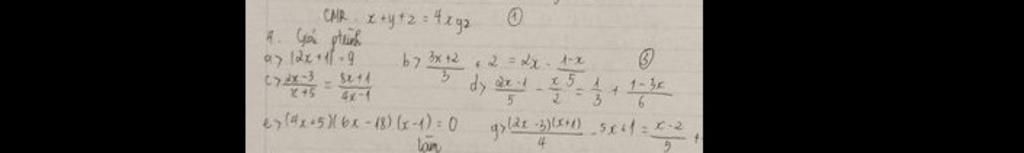 CMR x+y+z = 4xyz ①
4. Giải phtrình
a> |2x+1| = 9 b> \frac{3x+2}{3} + 2 = 2x - \frac{1-x}{5} ⑤
c> \frac{2x-3}{x+5} = \frac{8x+1}{4x-1} d> \frac{2x-1}{5} - \frac{x}{2} = \frac{1}{3} + \frac{1-3x}{6}
e> (4x+5)(6x-18)(x-1) = 0 g> \frac{(2x-3)(x+1)}{4} - 5x+1 = \frac{x-2}{5} +
Làm